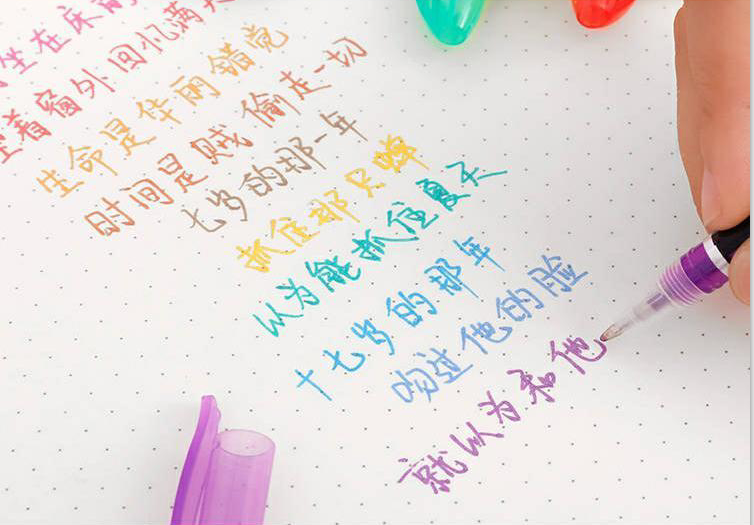 坐在床前
望着窗外回忆满天
生命是华丽错觉
时间是贼偷走一切
七岁的那一年
抓住那只蝉
以为能抓住夏天
十七岁的那年
吻过他的脸
就以为和他